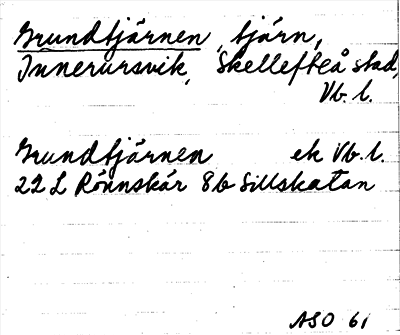 Grundtjärnen, tjärn,
Innerursvik, Skellefteå stad,
Vb. l.
Grundtjärnen ek Vb. l.
22 L Rönnskär 8b Sillskatan
ASO 61